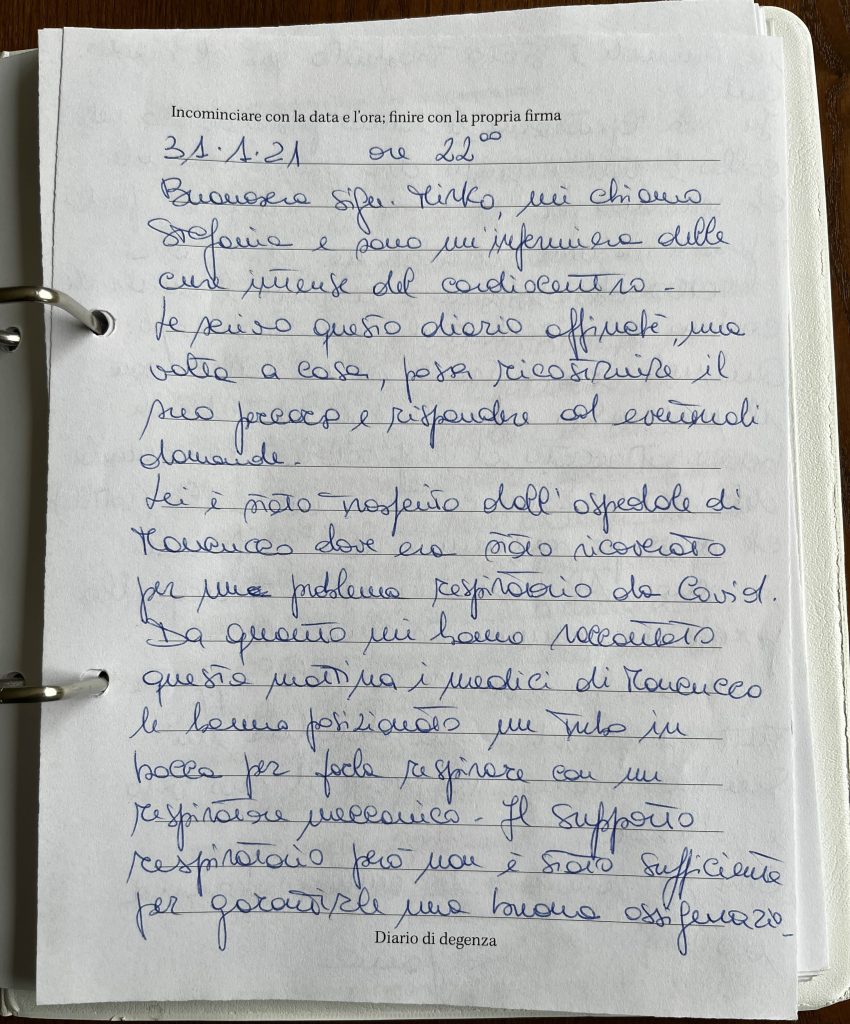 Incominciare con la data e l'ora; finire con la propria firma
31.1.21 ore 22⁰⁰
Buonasera sign. Mirko, mi chiamo
Stefania e sono un'infermiera delle
cure intense del cardiocentro -
Le scrivo questo diario affinché, una
volta a casa, possa ricostruire il
suo percorso e rispondere ad eventuali
domande.
Lei è stato trasferito dall'ospedale di
Moncucco dove era stato ricoverato
per un problema respiratorio da Covid.
Da quanto mi hanno raccontato
questa mattina i medici di Moncucco
le hanno posizionato un tubo in
bocca per farla respirare con un
respiratore meccanico - Il supporto
respiratorio però non è stato sufficiente
per garantirle una buona ossigenazio-
Diario di degenza